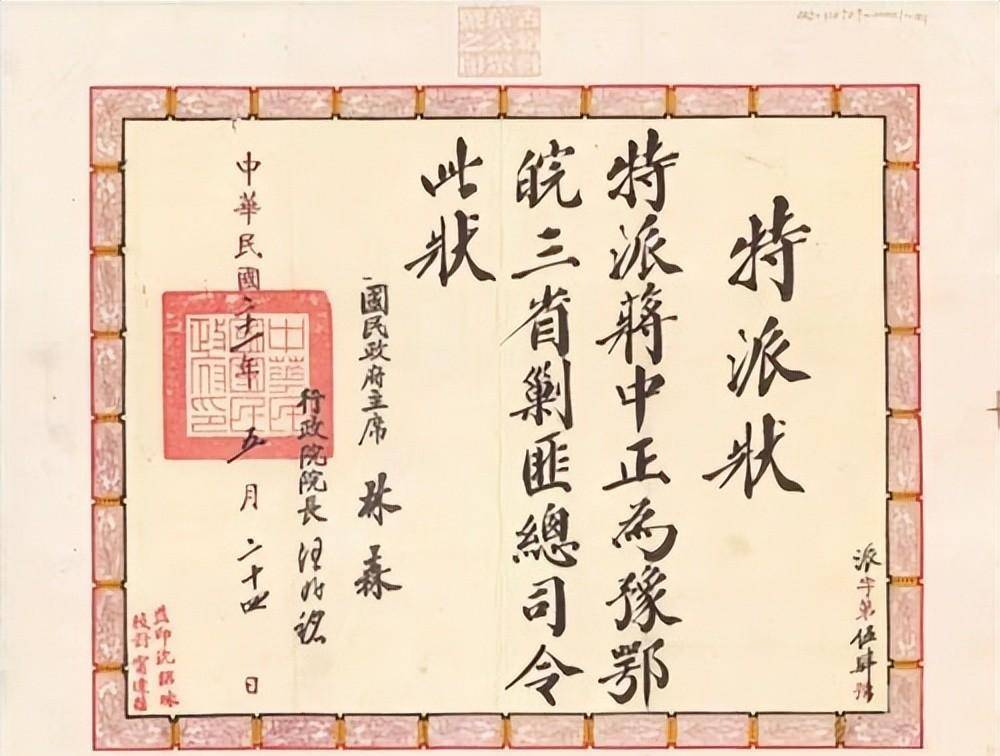 特派狀
特派蔣中正為豫鄂
皖三省剿匪總司令
此狀
國民政府主席 林森
行政院院長 汪兆銘
中華民國二十一年五月二十四日
派字第伍肆號
中華民國國民政府印